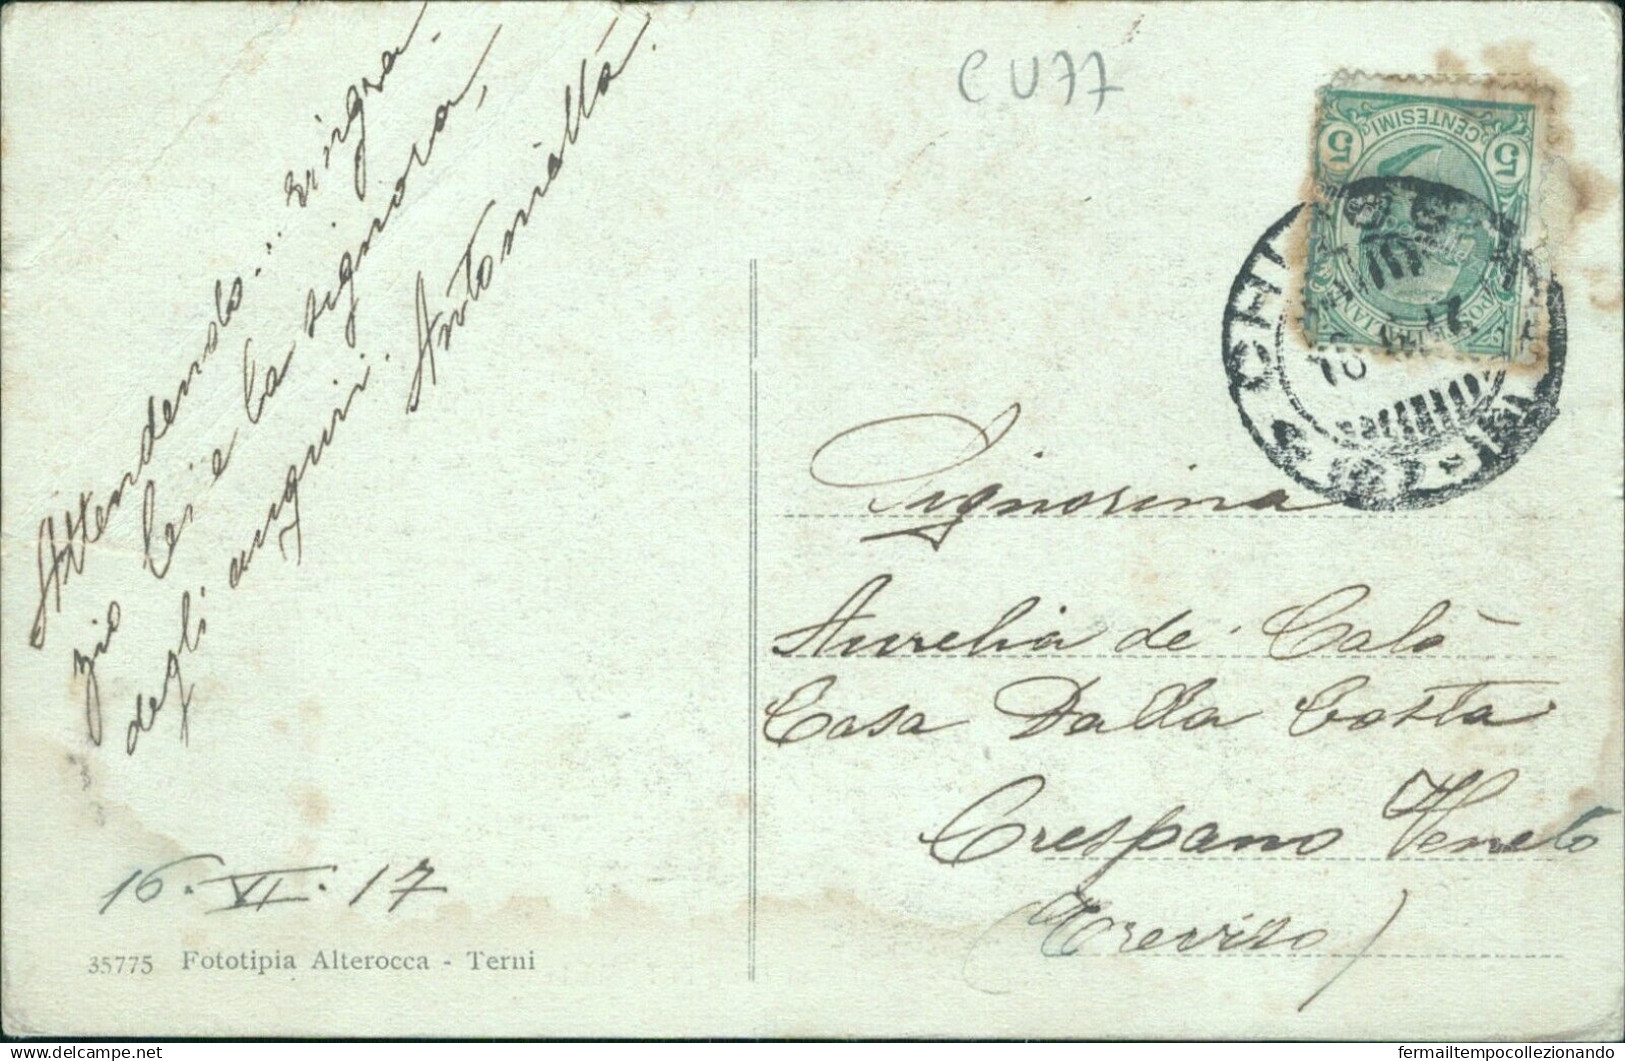 Attendendo.... ringra-
zio lei e la signora,
degli auguri. Antonietta.
16.VI.17
35775 Fototipia Alterocca - Terni
CU77
5 CENTESIMI 5
CHI
Signorina
Aurelia de Calò
Casa Dalla Costa
Crespano Veneto
(Treviso)
fermailtempocollezionando